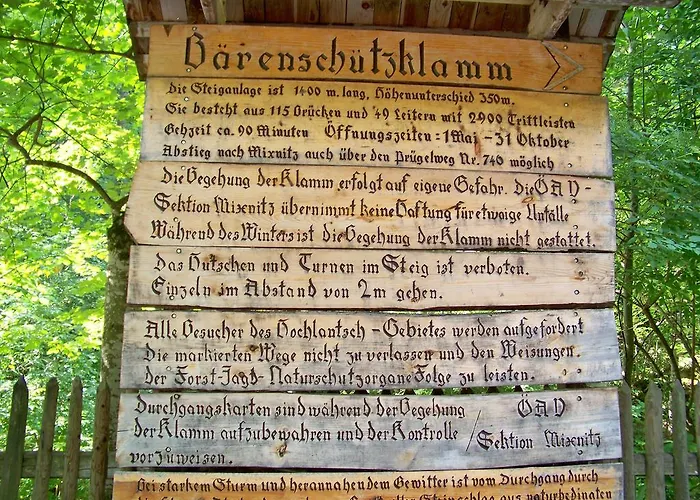 Bärenschützklamm
Die Steiganlage ist 1400 m. lang, Höhenunterschied 350m.
Sie besteht aus 115 Brücken und 49 Leitern mit 2900 Trittleisten
Gehzeit ca. 90 Minuten Öffnungszeiten: 1 Mai - 31 Oktober
Abstieg nach Mixnitz auch über den Prügelweg Nr. 746 möglich
Die Begehung der Klamm erfolgt auf eigene Gefahr. Die ÖAV -
Sektion Mixnitz übernimmt keine Haftung für etwaige Unfälle
Während des Winters ist die Begehung der Klamm nicht gestattet.
Das Hutschen und Turnen im Steig ist verboten.
Einzeln im Abstand von 2m gehen.
Alle Besucher des Hochlantsch - Gebietes werden aufgefordert
Die markierten Wege nicht zu verlassen und den Weisungen.
der Forst-Jagd- Naturschutzorgane Folge zu leisten.
Durchgangskarten sind während der Begehung
der Klamm aufzubewahren und der Kontrolle
vorzuweisen.
ÖAV
Sektion Mixnitz
Bei starkem Sturm und herannahendem Gewitter ist vom Durchgang durch
Steinschlag aus naturbedingten